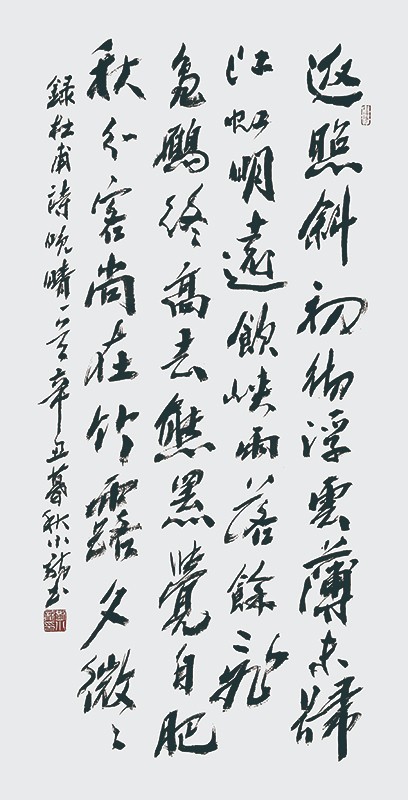 返照斜初彻浮雲薄未歸
江虹明遠飲峽雨落餘飛
鳧鴈終高去熊羆覺自肥
秋分客尚在竹露夕微〻
録杜甫詩晚晴一首辛丑暮秋小龍書